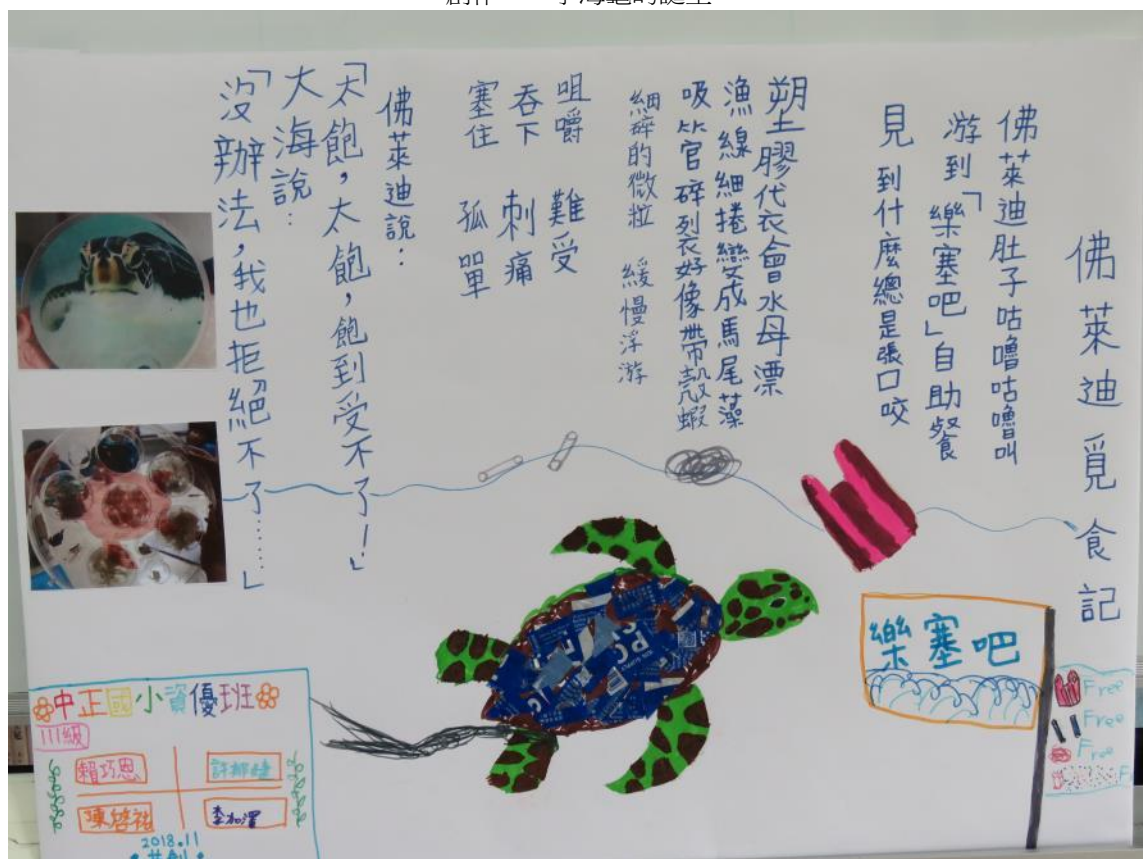 小海龜的誕生
佛萊迪覓食記
佛萊迪肚子咕嚕咕嚕叫
游到「樂塞吧」自助餐
見到什麼總是張口咬
塑膠袋會水母漂
漁線細捲變成馬尾藻
吸管碎裂好像帶殼蝦
細碎的微粒 緩慢浮游
咀嚼 難受
吞下 刺痛
塞住 孤單
佛萊迪說：
「太飽，太飽，飽到受不了！」
大海說：
「沒辦法，我也拒絕不了……」
樂塞吧
Free
Free
Free
中正國小資優班
111級
賴巧恩
陳啓祐
2018.11